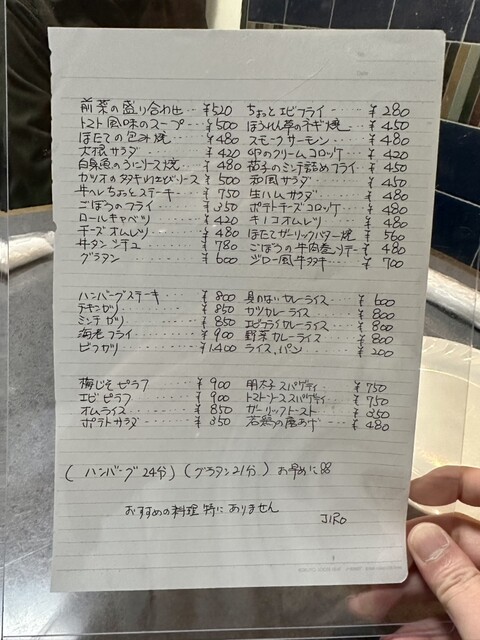 前菜の盛り合わせ ‥ ¥520
トマト風味のスープ ‥ ¥500
ほたての包み焼 ‥‥ ¥480
大根サラダ ‥‥ ¥420
白身魚のうにソース焼 ‥ ¥480
カツオのタタキわさびソース ¥500
牛ヘレちょっとステーキ ‥ ¥750
ごぼうのフライ ‥‥ ¥350
ロールキャベツ ‥‥ ¥420
チーズオムレツ ‥‥ ¥480
牛タンシチュー ‥‥ ¥780
グラタン ‥‥ ¥600
ちょっとエビフライ ‥‥ ¥280
ほうれん草のチギ焼 ‥‥ ¥450
スモークサーモン ‥‥ ¥480
カニのクリームコロッケ ‥ ¥420
茄子のミンチ詰めフライ ¥450
和風サラダ ‥‥ ¥450
生ハムサラダ ‥‥ ¥480
ポテトチーズコロッケ ‥ ¥420
キノコオムレツ ‥‥ ¥480
ほたてガーリックバター焼 ¥560
ごぼうの牛肉巻ソテー ‥ ¥480
ジロー風牛タタキ ‥‥ ¥700
ハンバーグステーキ ‥‥ ¥800
チキンカツ ‥‥ ¥850
ミンチカツ ‥‥ ¥850
海老フライ ‥‥ ¥900
ビフカツ ‥‥ ¥1,400
具のないカレーライス ‥ ¥600
カツカレーライス ‥‥ ¥800
エビフライカレーライス ‥ ¥800
野菜カレーライス ‥‥ ¥800
ライス、パン ‥‥ ¥200
梅じそピラフ ‥‥ ¥900
エビピラフ ‥‥ ¥900
オムライス ‥‥ ¥850
ポテトサラダ ‥‥ ¥350
明太子スパゲティ ‥ ¥750
トマトソーススパゲティ ‥ ¥750
ガーリックトースト ‥ ¥350
若鶏の唐あげ ‥‥ ¥480
(ハンバーグ24分)(グラタン21分) お早めに
おすすめの料理特にありません
JIRO